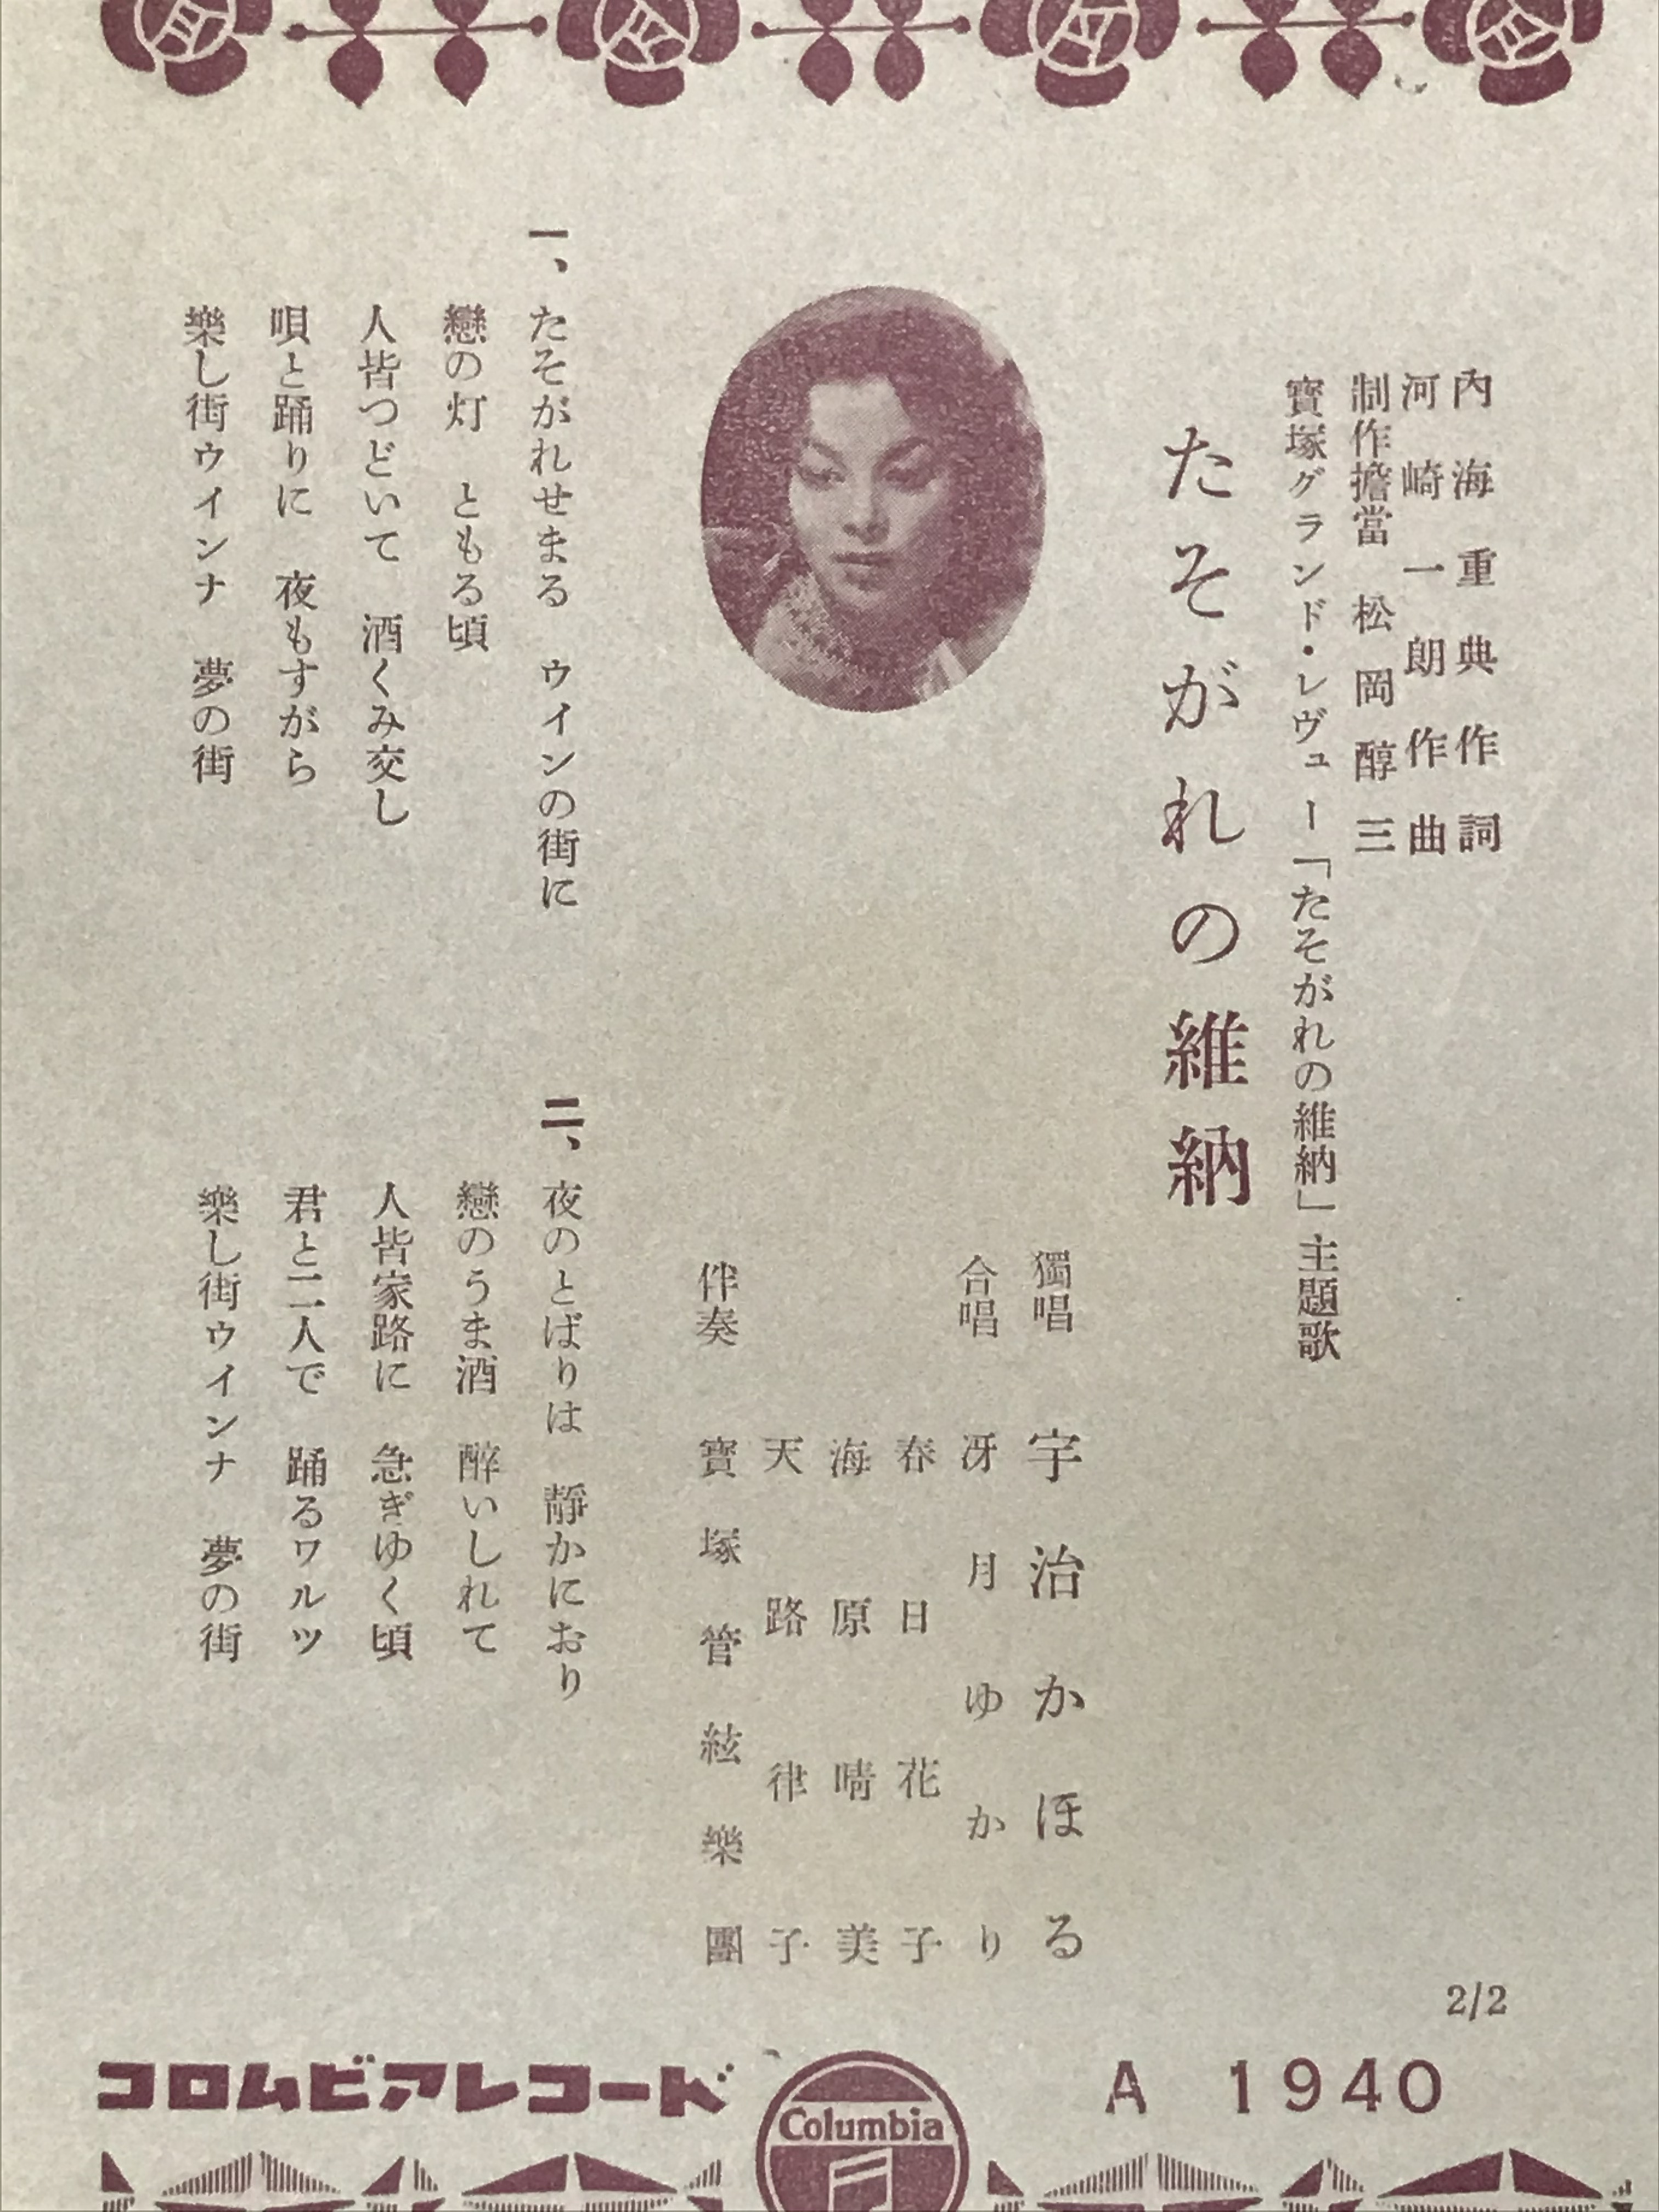 内海重典作詞
河崎一朗作曲
制作擔當 松岡醇三
寳塚グランド・レヴュー「たそがれの維納」主題歌
たそがれの維納
獨唱 宇治かほる
合唱 冴月ゆかり
春日花子
海原晴美
天路律子
伴奏 寳塚管絃樂團
一、
たそがれせまる ウインの街に
戀の灯 ともる頃
人皆つどいて 酒くみ交し
唄と踊りに 夜もすがら
樂し街ウインナ 夢の街
二、
夜のとばりは 靜かにおり
戀のうま酒 醉いしれて
人皆家路に 急ぎゆく頃
君と二人で 踊るワルツ
樂し街ウインナ 夢の街
2/2
コロムビアレコード
Columbia
A 1940